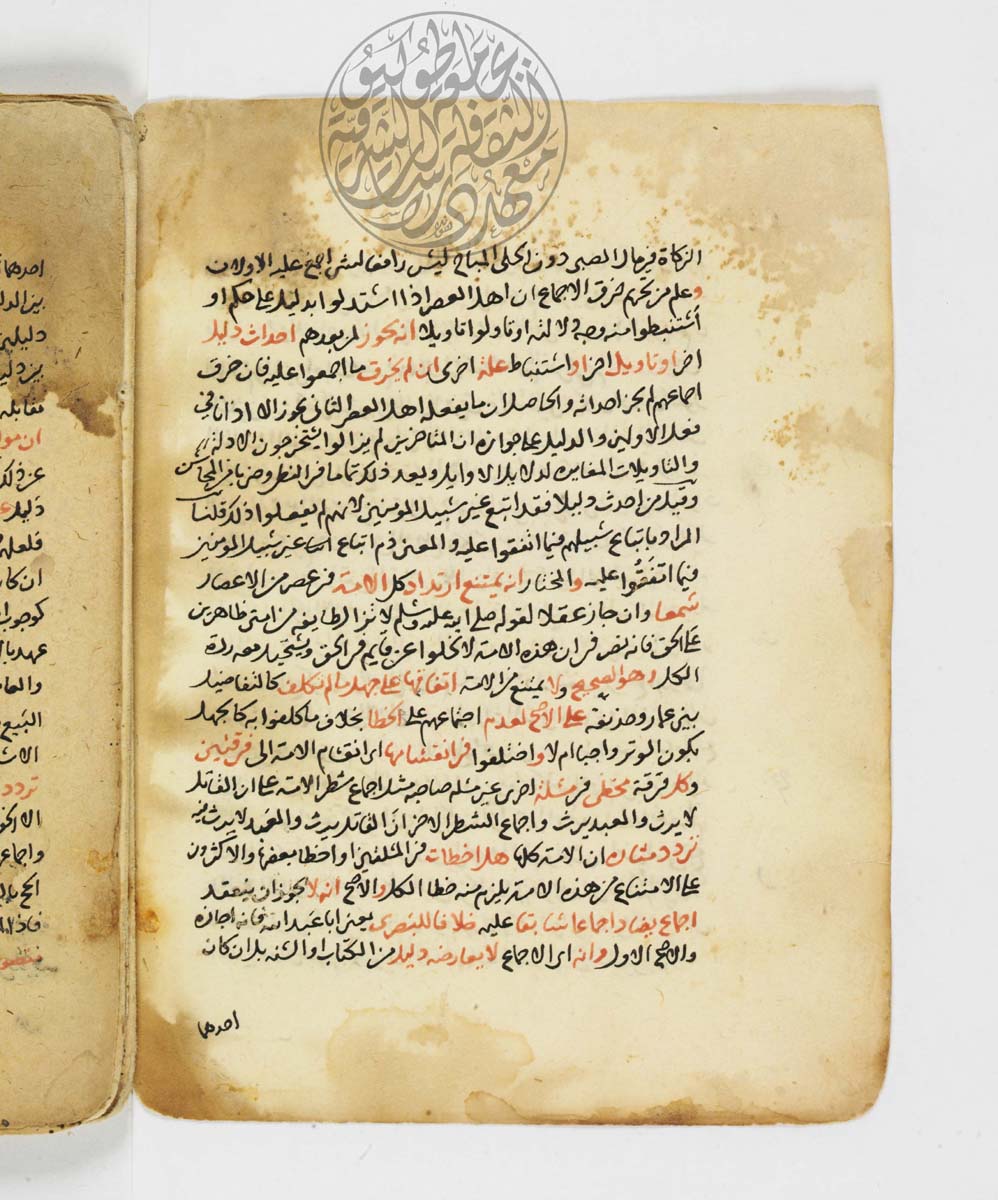 معهد دراسات الثقافة الشرقية
جامعة طوكيو
الزكاة في مال الصبي دون الحلي المباح ليس رافعا لشي اجمع عليه الاولان
وعلم من تحريم خرق الاجماع ان اهل العصر اذا استدلوا بدليل على حكم او
استنبطوا منه وجه دلالته او تاولوا تاويلا انه يجوز لمن بعدهم احداث دليل
اخر او تاويل اخر او استنباط علة اخرى ان لم يخرق ما اجمعوا عليه فان خرق
اجماعهم لم يجز احداثه والحاصل ان ما يفعله اهل العصر الثاني يجوز الا اذا نافى
فعل الاولين والدليل على جوازه ان المتاخرين لم يزالوا يستخرجون الادلة
والتاويلات المغايره لدلايل الاوايل ويعد ذلك تماما في النظر وضربا من المحاسن
وقيل من احدث دليلا فقد اتبع غير سبيل المومنين لانهم لم يفعلوا ذلك قلنا
المراد باتباع سبيلهم فيما اتفقوا عليه والمعنى ذم اتباع غير سبيل المومنين
فيما اتفقوا عليه والمختار انه يمتنع ارتداد كل الامة في عصر من الاعصار
سمعا وان جاز عقلا لقوله صلى الله عليه وسلم لا تزال طايفه من امتي ظاهرين
على الحق فانه نص في ان هذه الامة لا تخلوا عن قايم في الحق ويستحيل معه ردة
الكل وهو الصحيح ولا يمتنع من الامة اتفاقها على جهل ما لم تكلف كالتفاضيل
بين عمار وحذيفة على الاصح لعدم اجتماعهم على الخطا بخلاف ما كلفوا به كالجهل
بكون الوتر واجبا ام لا واختلفوا في انقسامها اي انقسام الامة الى فرقتين
وكل فرقة مخطى في مسئلة اخرى غير مسئلة صاحبه مثل اجماع شطر الامة على ان القاتل
لا يرث والعبد يرث واجماع الشطر الاخر ان القاتل يرث والعبد لا يرث فيه
تردد مثاره ان الامة كلها هل اخطات في المسئلتين او اخطا بعضها والاكثرون
على الامتناع من هذه الامة يلزم منه خطا الكل والاصح انه لا يجوز ان ينعقد
اجماع يضاد اجماعا سابقا عليه خلافا للبصري يعني ابا عبد الله فانه اجازه
والاصح الاول وانه اي الاجماع لا يعارضه دليل من الكتاب او السنة بل ان كان
احدهما